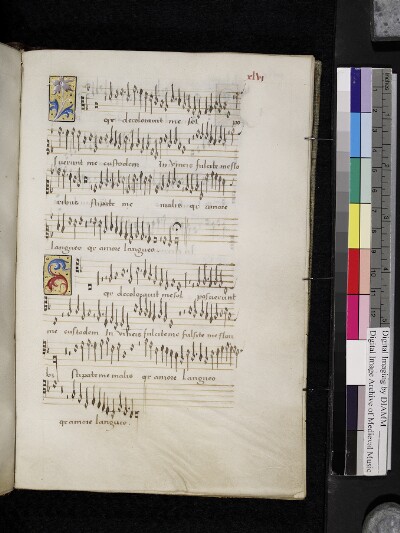 xlvi
qr decoloravit me sol po
suerunt me custodem In vineis fulcite me flo
ribus stipate me malis qr amore
langueo qr amore langueo.
qr decoloravit me sol posuerunt
me custodem In vineis fulcite me fulcite me flori
bus stipate me malis qr amore langueo
qr amore langueo.
Digital Imaging by DIAMM
Digital Image Archive of Medieval Music